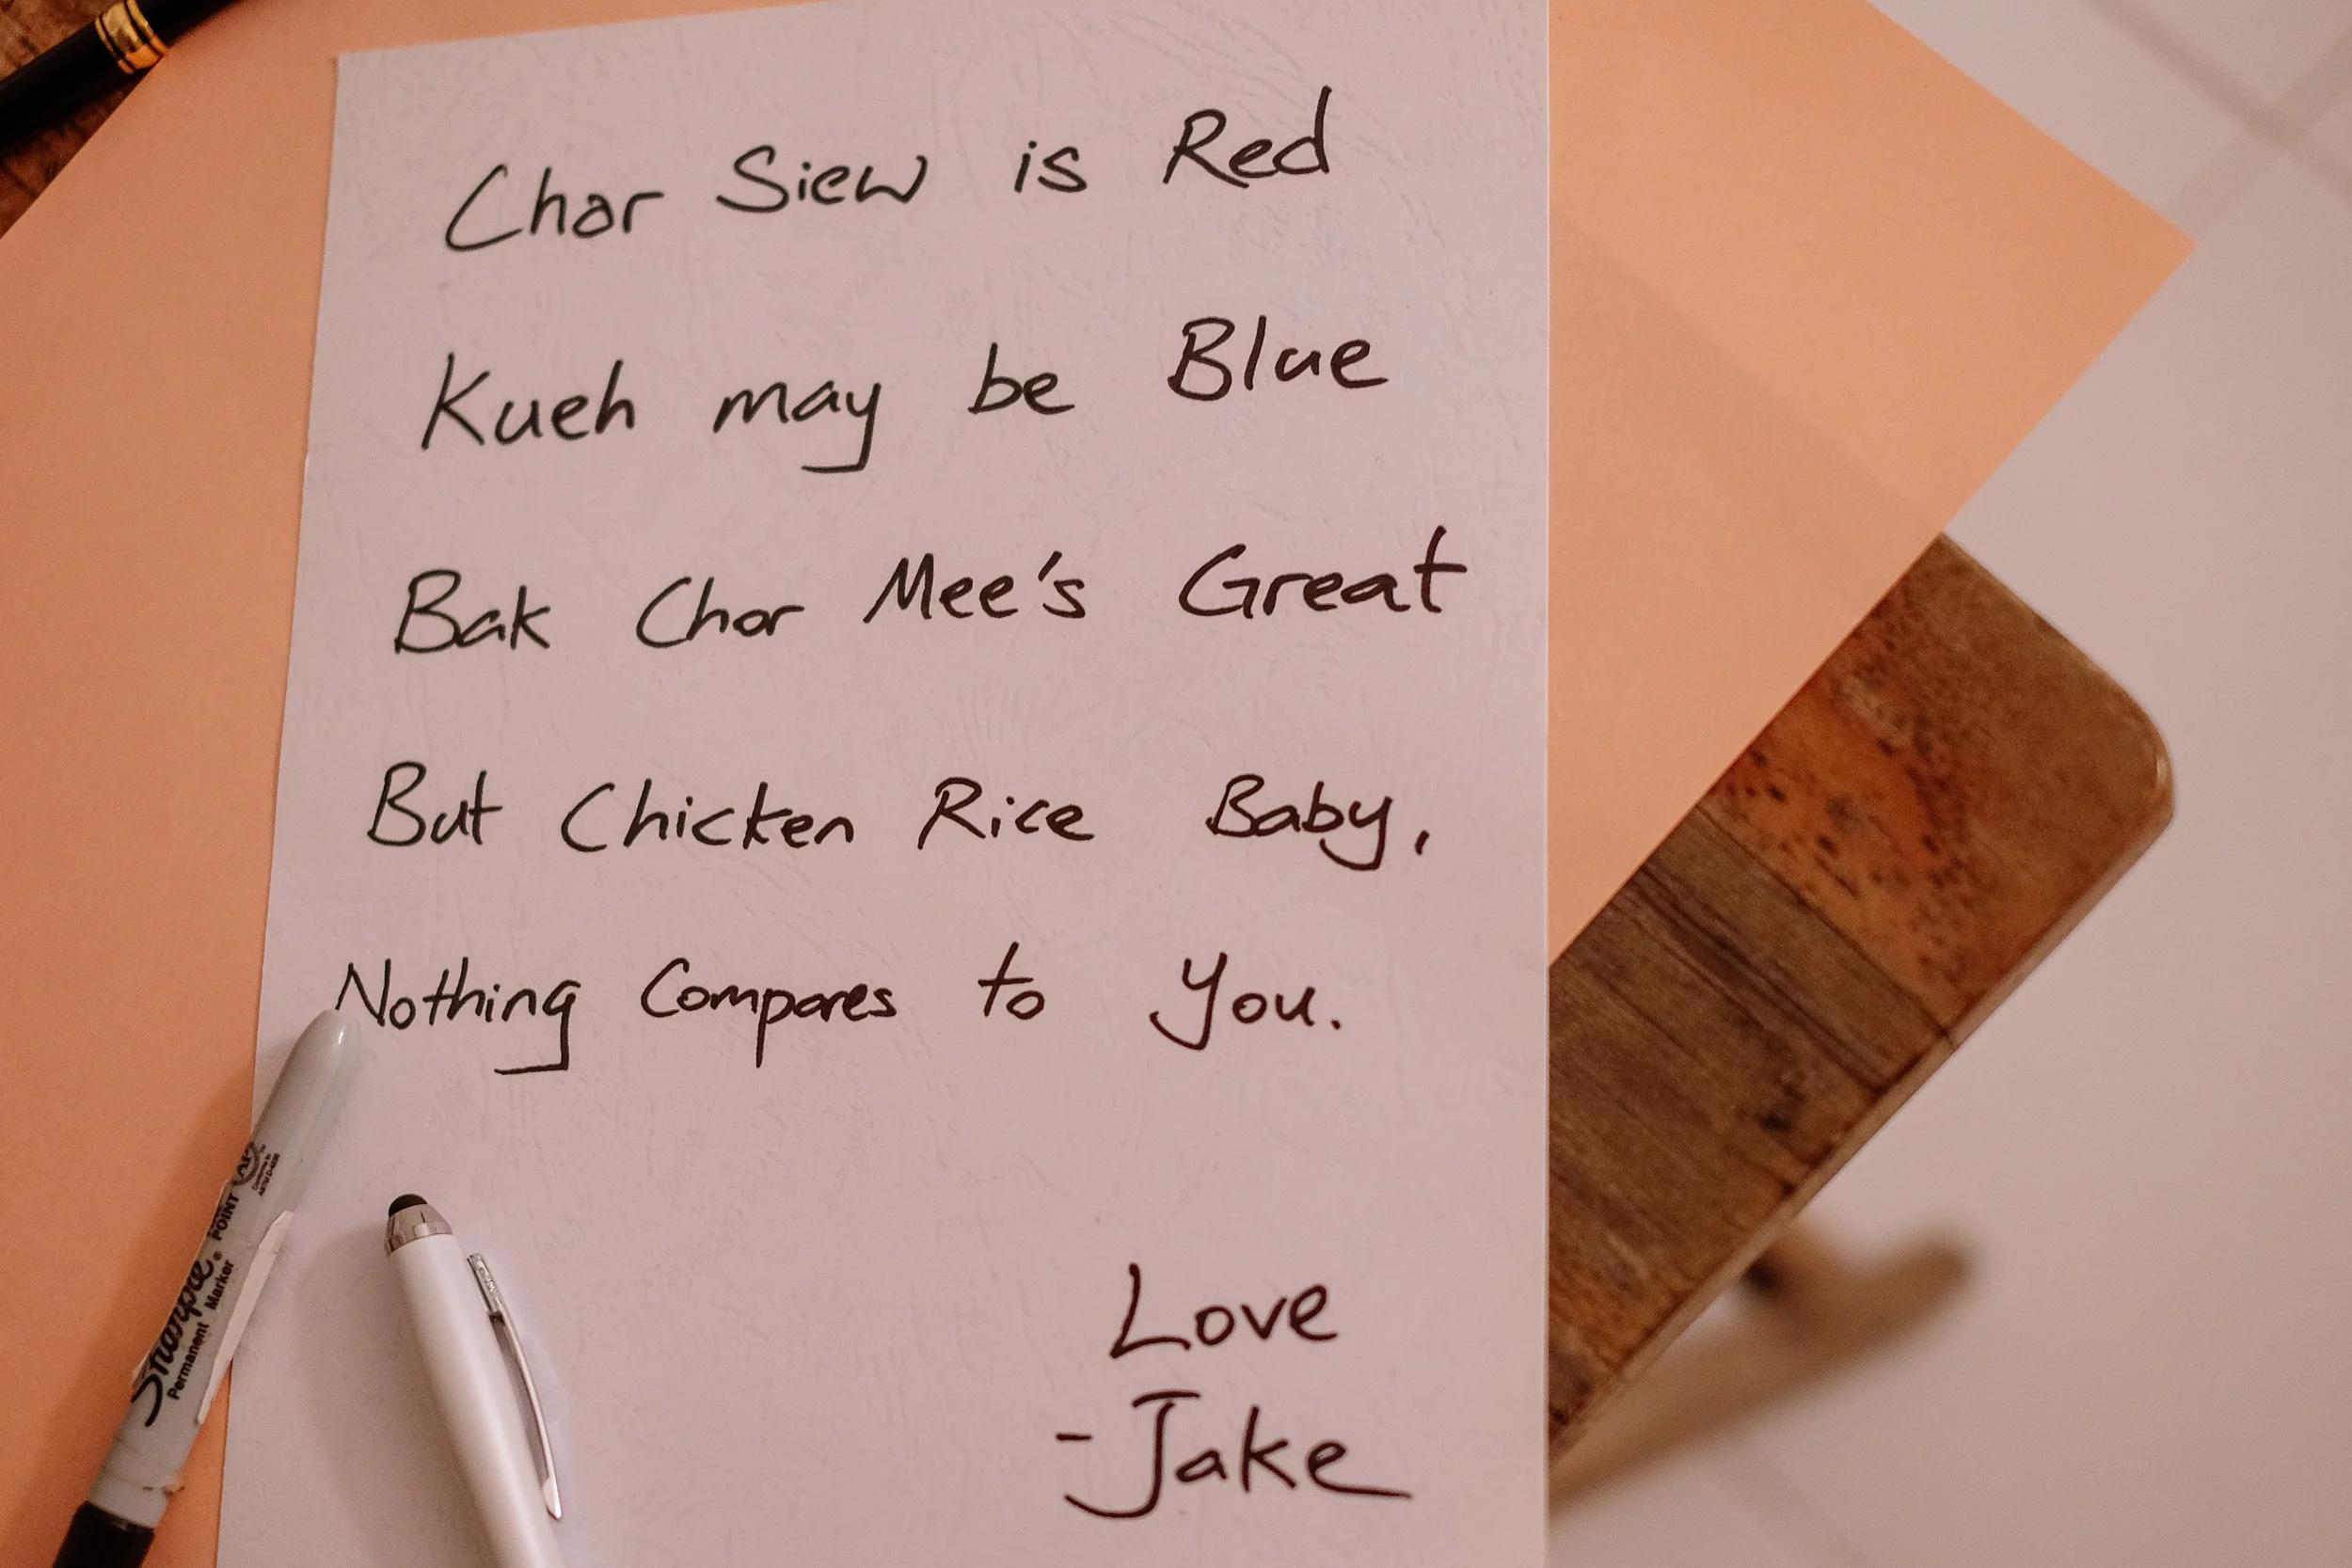 Char Siew is Red
Kueh may be Blue
Bak Chor Mee's Great
But Chicken Rice Baby,
Nothing Compares to You.
Love
-Jake
Sharpie®
POINT
Permanent Marker